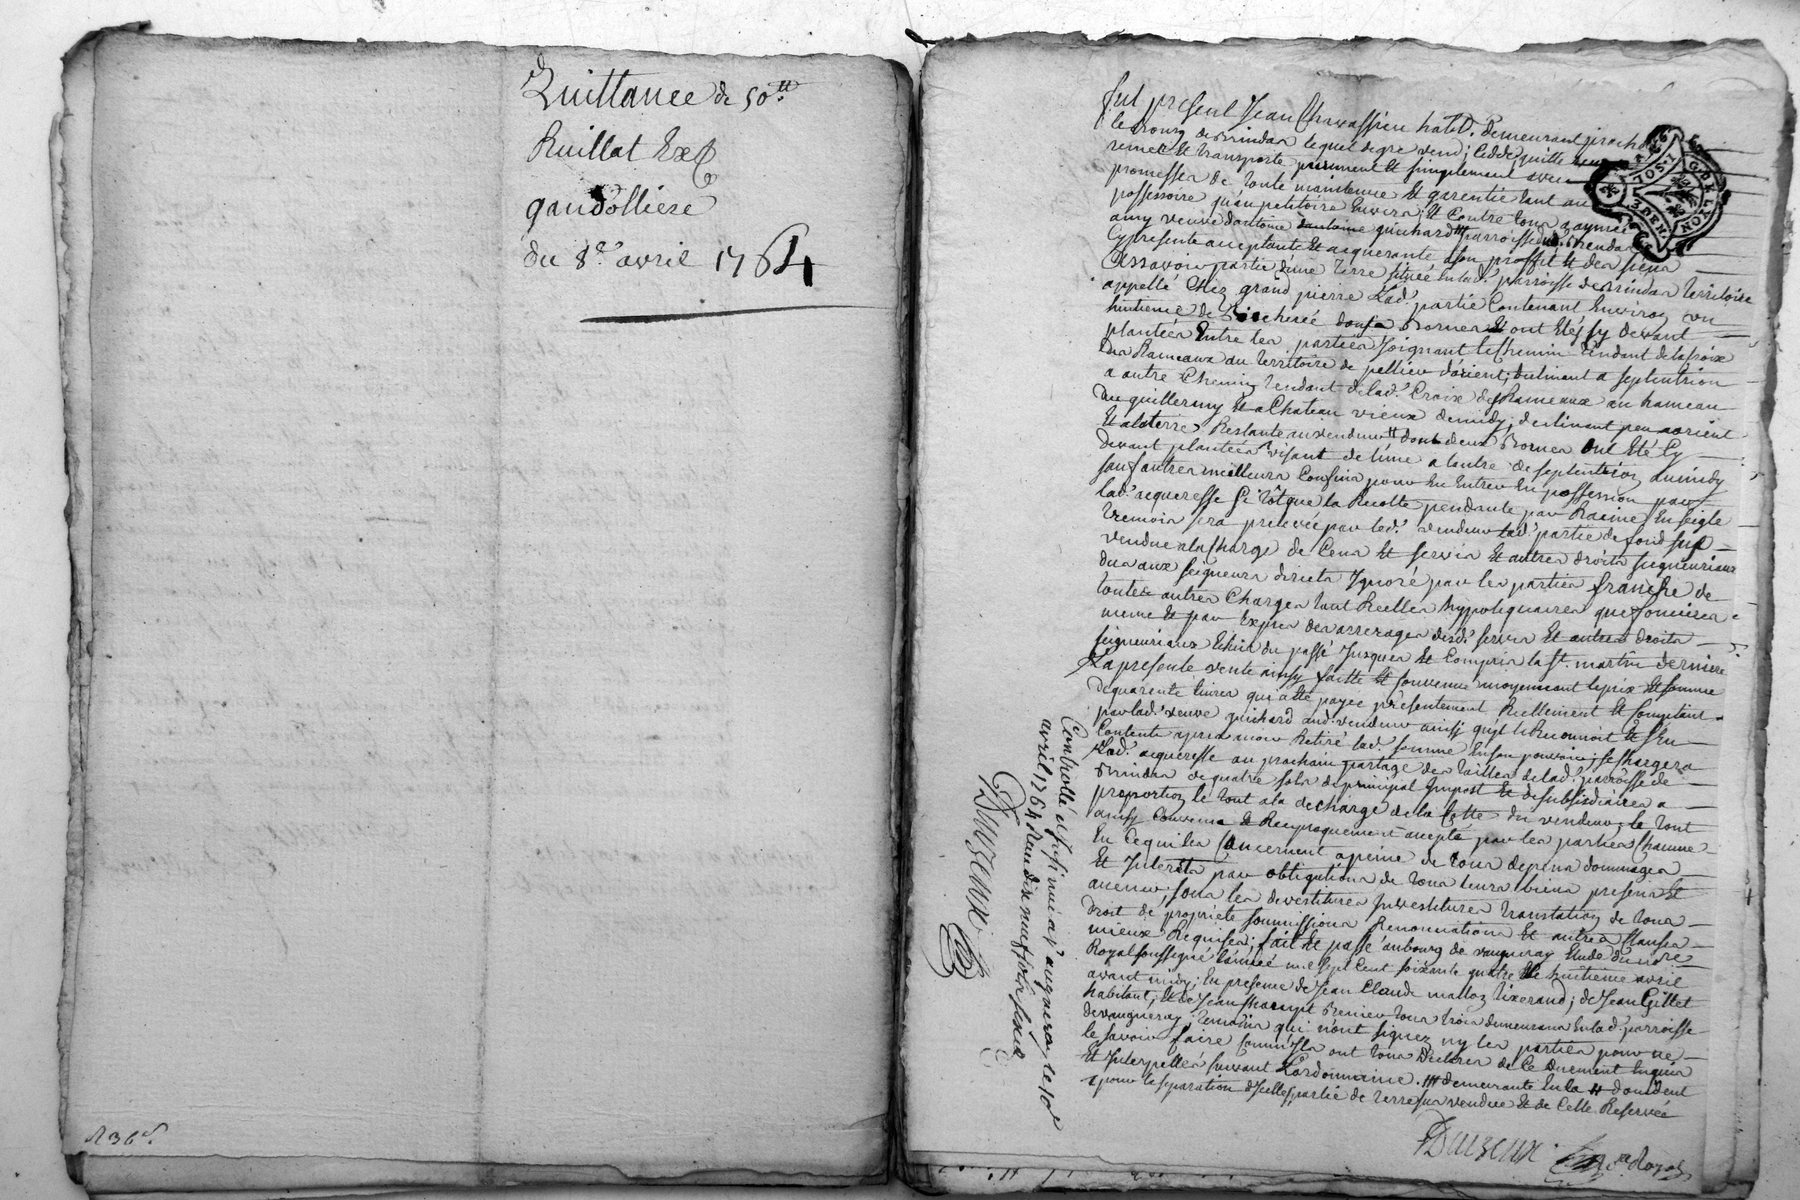 Quittance de 50.tt
Ruillat Ex
gaudolliere
du 8e. avril 1764
fut present Jean Chavassieu habt. demeurant
le Bourg de Brindas lequel degre vend, cedde, quitte
remet et transporte purement et simplement avec
promesses de toute maintenue et garentie tant au
possessoire qu'au petitoire Envers et Contre tous a
veuve d'antoine guichard parroisse de Brindas
Cy presente acceptante et acquerante a son proffit et des siens
Assavoir partie d'une terre située en lad. parroisse de Brindas territoire
appellé Chez grand pierre Lad. partie Contenant Environ un
huitieme de Bicherée dont les Bornes ont Etés cy devant
plantées Entre les parties Joignant le Chemin tendant de la Croix
Des Rameaux au territoire de pellieu d'orient, declinant a septentrion
a autre Chemin tendant de lad. Croix des Rameaux au hameau
Du guillermy Et a Chateau vieux de midy, declinant peu a orient
Et a la terre Restante au vendeur dont deux Bornes ont Eté Cy
devant plantées visant de l'une a l'autre de septentrion au midy
sauf autres meilleurs Confins pour En Entrer En possession par
lad. acqueresse si tôt que la Recolte pendante par Racines En seigle
tremois sera prelevée par led. vendeur lad. partie de fond sus
vendue a la Charge de Cens et servis Et autres droits seigneuriaux
dus aux seigneurs directs Ignoré par les parties franche de
toutes autres Charges tant Réelles hypotequaires que foncieres
meme Et par Exprès des arrerages desd. servis Et autres droits
seigneuriaux Echus du passé Jusques Et Compris la St. martin derniere
La presente vente ainsy faitte Et Convenue moyennant le prix Et somme
De quarente livres qui a Eté payée presentement Réellement Et Comptant
par lad. veuve guichard aud. vendeur ainsy qu'il le Reconnoit Et s'En
Contente apres avoir Retiré lad. somme En son pouvoir; se Chargera
Lad. acqueresse au prochain partage des tailles de lad. parroisse de
Brindas de quatre sols de principal Impost Et de subsidiaires a
proportion le tout a la decharge de la Cotte du vendeur, le tout
ainsy Convenu Et Reciproquement accepté par les parties Chacune
En Ce qui les Concernent a peine de tous depens dommages
Et Interêts par obligations de tous leurs biens presens Et
avenir, sous les devestitures Investitures translation de tous
Droit de propriété soumissions Renonciations Et autres Clauses
mieux Requises; fait Et passé au bourg de vaugneray Etude du nore
Royal soussigné L'année mil sept Cent soixante quatre Et le huitieme avril
avant midy; En presence de Jean Claude mattoz tixerand, de Jean Gillet
habitant, Et de Jean Grenier tous trois demeurans En lad. parroisse
de vaugneray, temoins qui n'ont signez ny les parties pour ne
le savoir faire Comm'Ils ont tous Declarés de Ce Duement Enquis
Et Interpellés suivant L'ordonnance. demeurante En la
pour la separation d'Icelle partie de terre sus vendue Et de Celle Reservée
Duzeux
nore Royal
Controllé et Insinué a vaugneray le 10e
avril 1764 Reçu dix neuf sols six d.
Duzeux
G. DE LYON
1. SOL